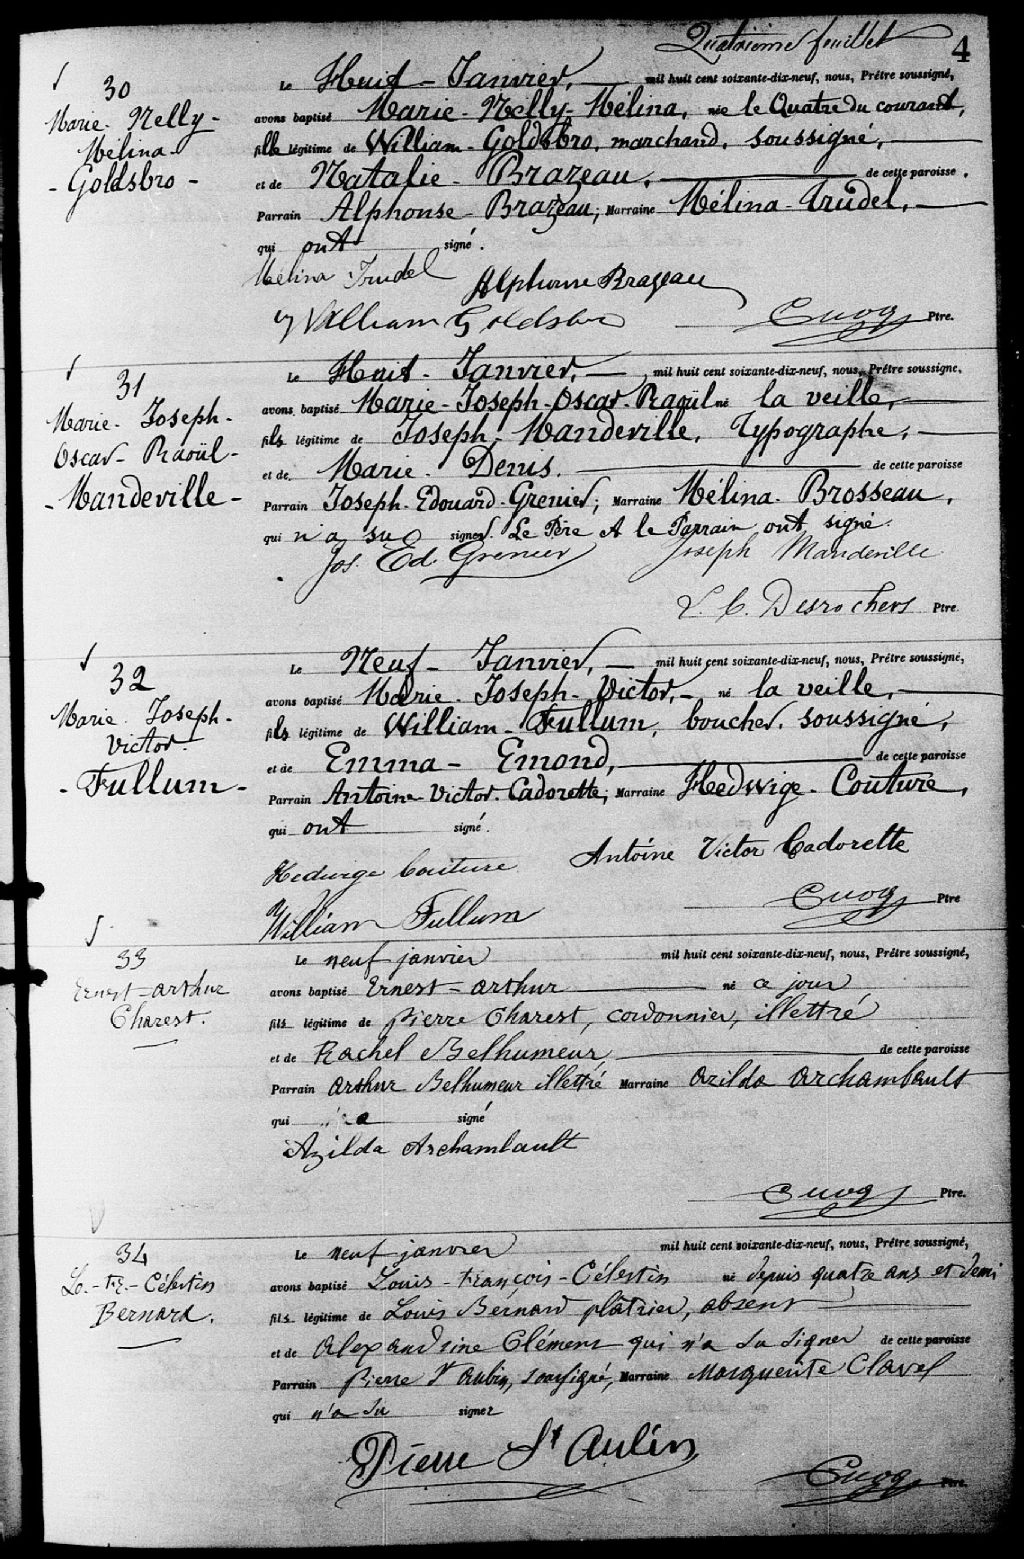 Quatrième feuillet 4
30
Marie-Nelly-
Mélina-
- Goldsbro -
Le Huit - Janvier, mil huit cent soixante-dix-neuf, nous, Prêtre soussigné,
avons baptisé Marie-Nelly-Mélina, née le Quatre du courant,
fille légitime de William-Goldsbro, marchand, soussigné,
et de Natalie-Brazeau, de cette paroisse.
Parrain Alphonse-Brazeau; Marraine Mélina-Trudel,
qui ont signé.
Mélina Trudel Alphonse Brazeau
William Goldsbro Cuoq Ptre.
31
Marie-Joseph-
Oscar-Raoül-
- Mandeville -
Le Huit - Janvier, mil huit cent soixante-dix-neuf, nous, Prêtre soussigné,
avons baptisé Marie-Joseph-Oscar-Raoül né la veille,
fils légitime de Joseph-Mandeville, Typographe,
et de Marie-Denis. de cette paroisse
Parrain Joseph-Edouard-Grenier; Marraine Mélina-Brosseau,
qui n'a su signer. Le Père et le Parrain ont signé.
Jos. Ed. Grenier Joseph Mandeville
L. C. Desrochers Ptre.
32
Marie-Joseph-
Victor.
- Fullum -
Le Neuf - Janvier, mil huit cent soixante-dix-neuf, nous, Prêtre soussigné,
avons baptisé Marie-Joseph-Victor, né la veille,
fils légitime de William-Fullum, boucher, soussigné,
et de Emma-Emond, de cette paroisse
Parrain Antoine-Victor-Cadorette; Marraine Hedwige-Couture,
qui ont signé.
Hedwige Couture Antoine Victor Cadorette
William Fullum Cuoq Ptre
33
Ernest-Arthur
Charest.
Le neuf janvier mil huit cent soixante-dix-neuf, nous, Prêtre soussigné,
avons baptisé Ernest-Arthur né ce jour
fils légitime de Pierre Charest, cordonnier, illettré
et de Rachel Belhumeur, de cette paroisse
Parrain Arthur Belhumeur illettré Marraine Azilda Archambault
qui a signé
Azilda Archambault
Cuoq Ptre.
34
Ls.-Fs-Célestin
Bernard.
Le neuf janvier mil huit cent soixante-dix-neuf, nous, Prêtre soussigné,
avons baptisé Louis-François-Célestin né depuis quatre ans et demi
fils légitime de Louis Bernard plâtrier, absent
et de Alexandrine Clément qui n'a su signer de cette paroisse
Parrain Pierre St Aubin, soussigné, Marraine Marguerite Clavel
qui n'a su signer
Pierre St Aubin
Cuoq Ptre.